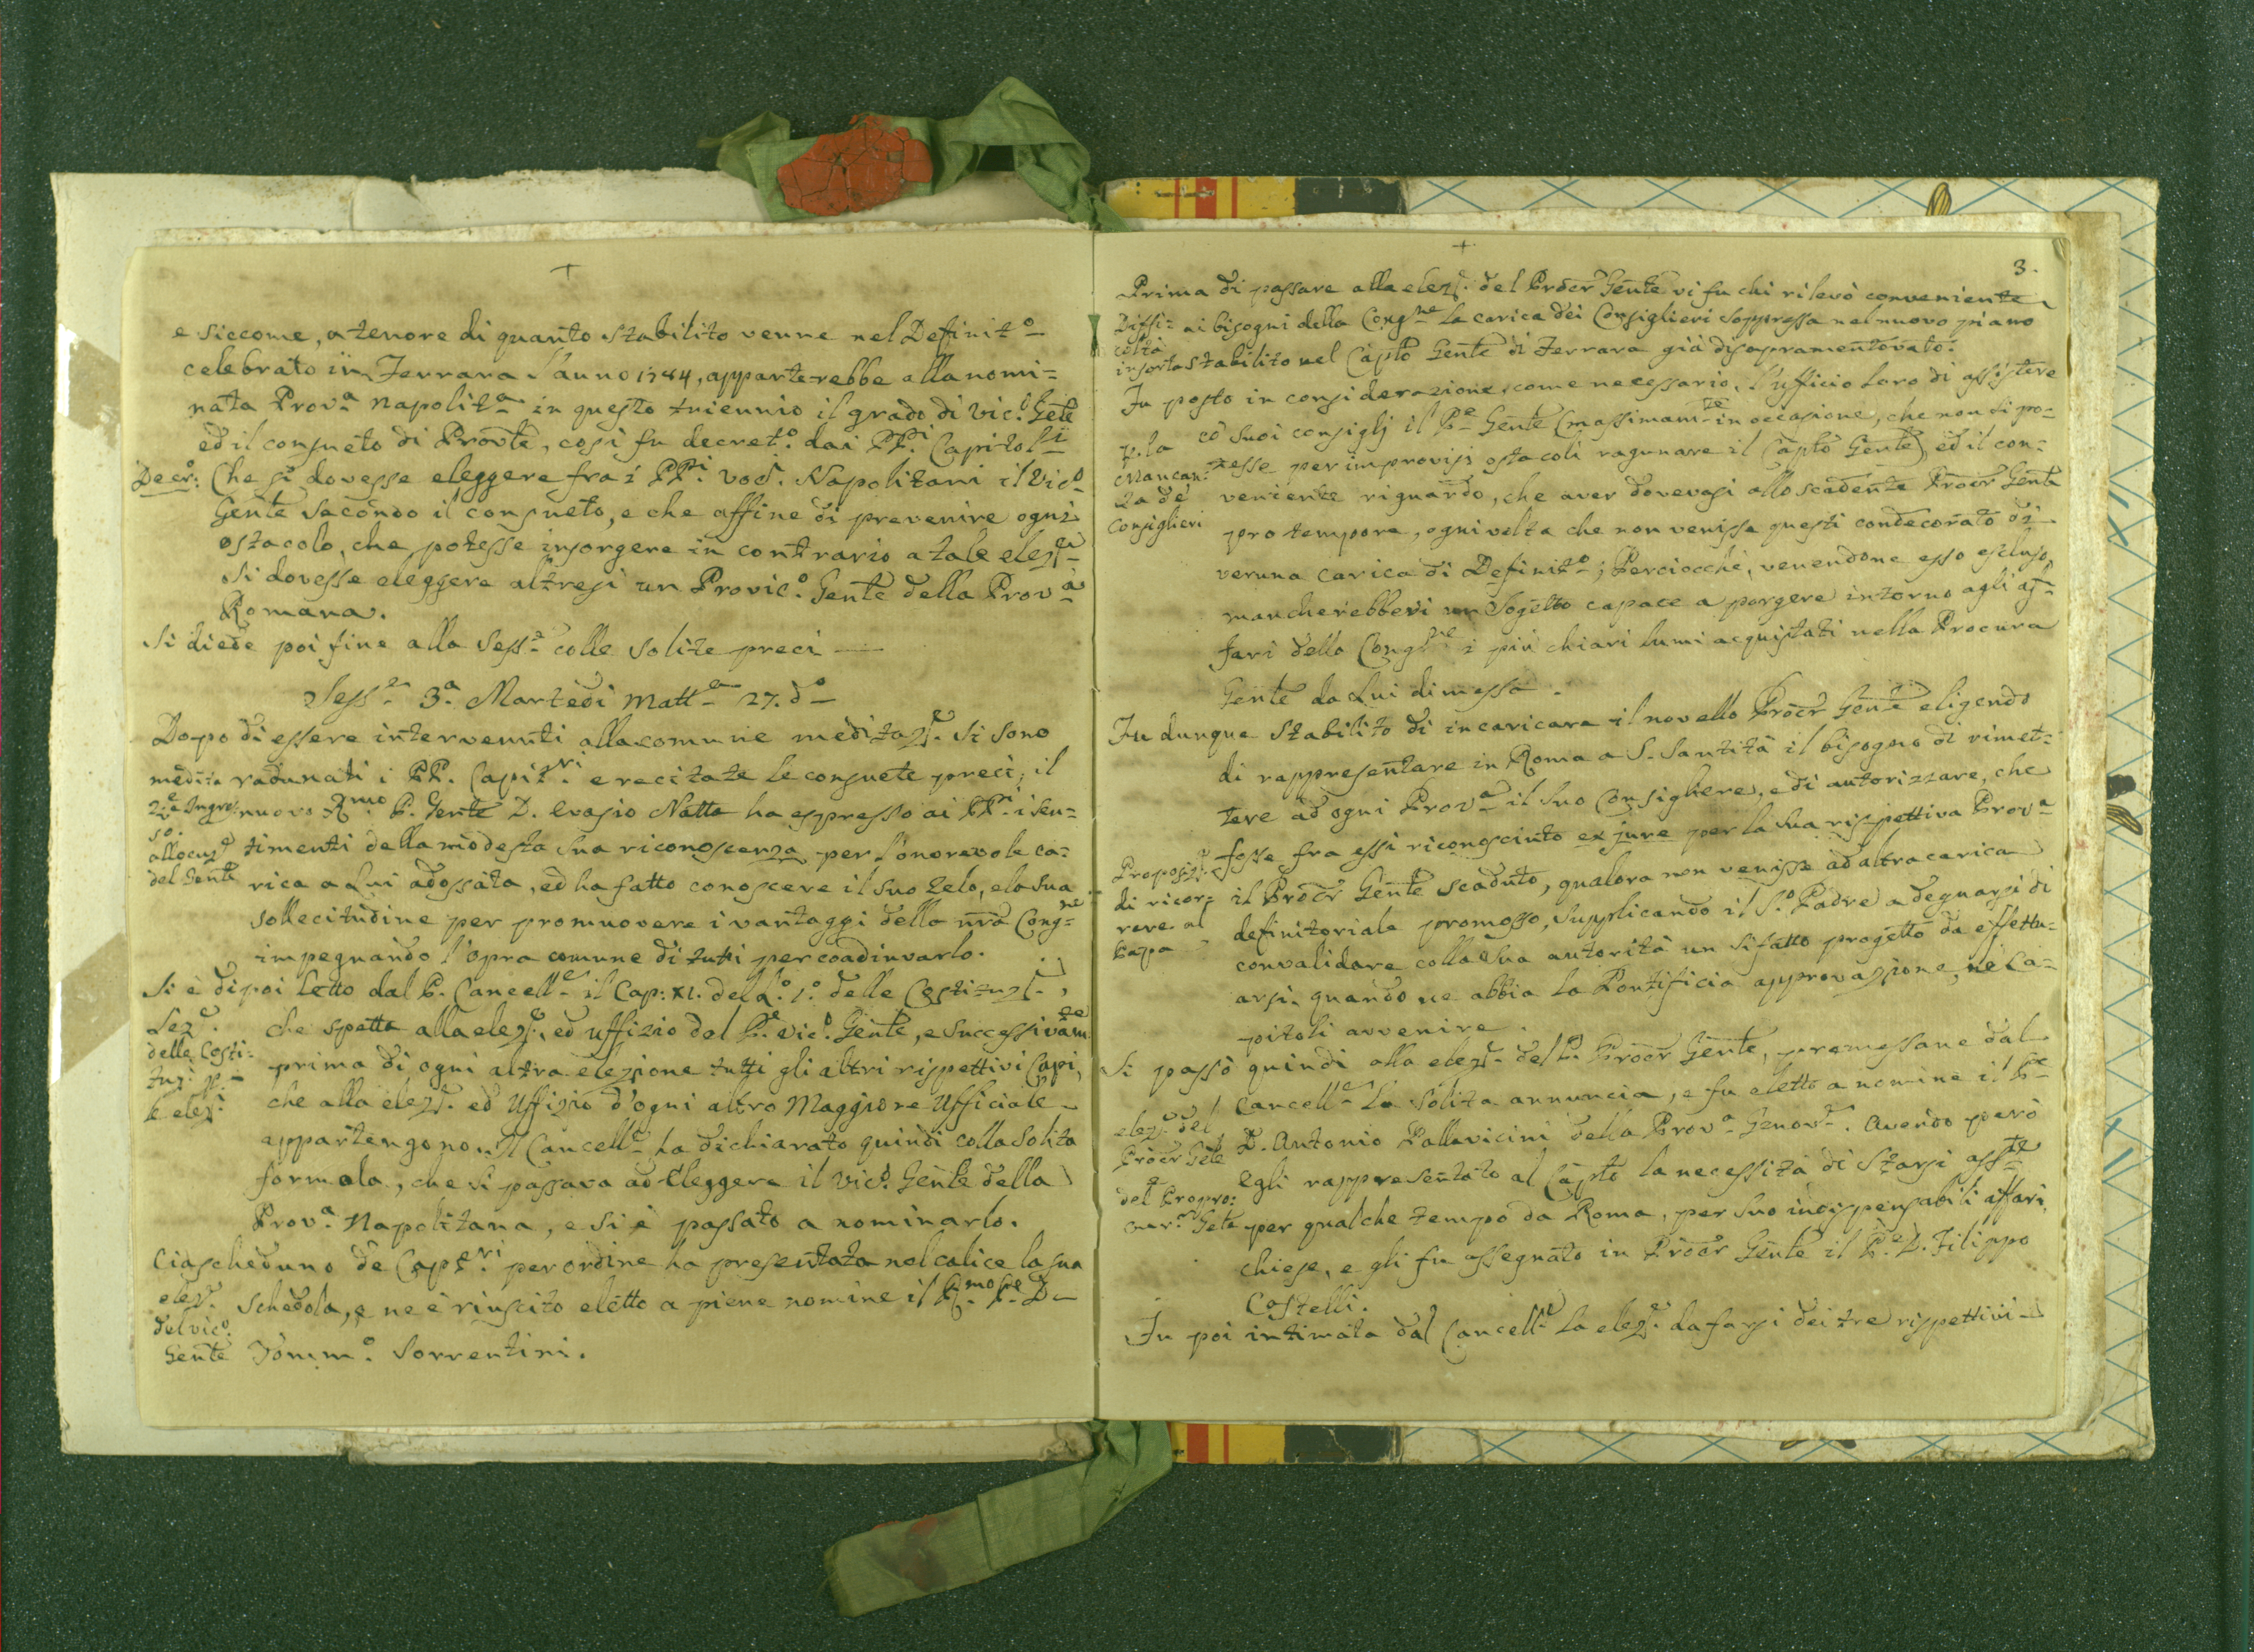 +
e siccome, a tenore di quanto stabilito venne nel Definit.o
celebrato in Ferrara l'anno 1784, apparterrebbe alla nomi=
nata Prov.a Napolit.a in questo triennio il grado di Vic.o Gẽnte
ed il consueto di Prov̄te, così fu decret.o dai PP.i Capitol.i
Decr.o: Che si dovesse eleggere fra i PP.i voc.i Napolitani il Vic.o
Gẽnte sacondo il consueto, e che affine di prevenire ogni
ostacolo, che potesse insorgere in contrario a tale elez.e
si dovesse eleggere altresì un Provic.o Gẽnte della Prov.a
Romana.
Si diede poi fine alla Sess.e colle solite preci —
Sess.e 3.a Martedì matt.a 27. d.o
Dopo di essere intervenuti alla comune meditaz.e si sono
medita radunati i PP. Capit.ri e recitate le consuete preci; il
z.e Ingres nuovo R.mo P. Gẽnte D. Evasio Natta ha espresso ai PP.i i sen=
so.
allocuz.e timenti della modesta sua riconoscenza per l'onorevole ca=
del Gẽnte rica a Lui adossata, ed ha fatto conoscere il suo Zelo, e la sua
sollecitudine per promuovere i vantaggi della nr̃a Cong.ne
impegnando l'opra comune di tutti per coadiuvarlo.
Si è dipoi letto dal P. Cancell.e il Cap: XI. del L.o 1.o delle Costituz.i,
Lez.e che spetta alla elez.e, ed uffizio del P.e Vic.o Gẽnte, e successivam.te
delle Costi= prima di ogni altra elezione tutti gli altri rispettivi Capi,
tuz.i p.
le elez.i che alla elez.e ed Uffizio d'ogni altro Maggiore Ufficiale
appartengono. Il Cancell.e ha dichiarato quindi colla solita
formola, che si passava ad Eleggere il Vic.o Gẽnte della
Prov.a Napolitana, e si è passato a nominarlo.
Ciascheduno de Capit.ri per ordine ha presentata nel calice la sua
elez.e schedola, e ne è riuscito eletto a piene nomine il R.mo P.re D.
del vic.o
Gẽnte Domm.o Sorrentini.
+
3.
Prima di passare alla elez.e del Procr̃ Gẽnte vi fu chi rilevò conveniente
Diffi= ai bisogni della Cong.ne la carica dei Consiglieri soppressa nel nuovo piano
coltà
insorta stabilito nel Cap̃to Gẽnte di Ferrara già disopramentovato.
Fu posto in considerazione come necessario, l'ufficio loro di assistere
p. la cõ suoi consiglj il P.e Gẽnte (massimam.te in occasione, che non si po=
Mancan= tesse per improvisi ostacoli ragunare il Cap̃to Gẽnte), ed il con=
za de' veniente riguardo, che aver dovevasi allo scadente Procr̃ Gẽnte
Consiglieri pro tempore, ogni volta che non venisse questi condecorato di
veruna carica di Definit.o; Perciocchè, venendone esso escluso,
mancherebbevi un Sogetto capace a porgere intorno agli af=
fari della Cong.ne i più chiari lumi acquistati nella Procura
Gẽnte da Lui dimessa.
Fu dunque stabilito di incaricare il novello Procr̃ Gẽnte eligendo
di rappresentare in Roma a S. Santità il bisogno di rimet=
tere ad ogni Prov.a il suo Consigliere, e di autorizzare, che
fosse fra essi riconosciuto ex jure per la sua rispettiva Prov.a
Proposiz.e il Procr̃ Gẽnte scaduto, qualora non venisse ad altra carica
di ricor= definitoriale promosso, supplicando il S.o Padre a degnarsi di
rere al
Papa convalidare colla sua autorità un sifatto progetto da effettu=
arsi, quando ne abbia la Pontificia approvazione, ne Ca=
pitoli avvenire.
Si passò quindi alla elez.e del P. Procr̃ Gẽnte, premessane dal
Cancell.e la solita annuncia, e fu eletto a nomine il P.e
elez.e del D. Antonio Pallavicini della Prov.a Genov.e. Avendo però
Procr̃ Gẽte egli rappresentato al Cap̃to la necessità di starsi ass.te
e
del Propro= per qualche tempo da Roma, per suo indispensabili affari,
cur.re Gẽte
chiese, e gli fu assegnato in Procr̃ Gẽnte il P.e D. Filippo
Castelli.
Fu poi intimata dal Cancell.e la elez.e da farsi dei tre rispettivi